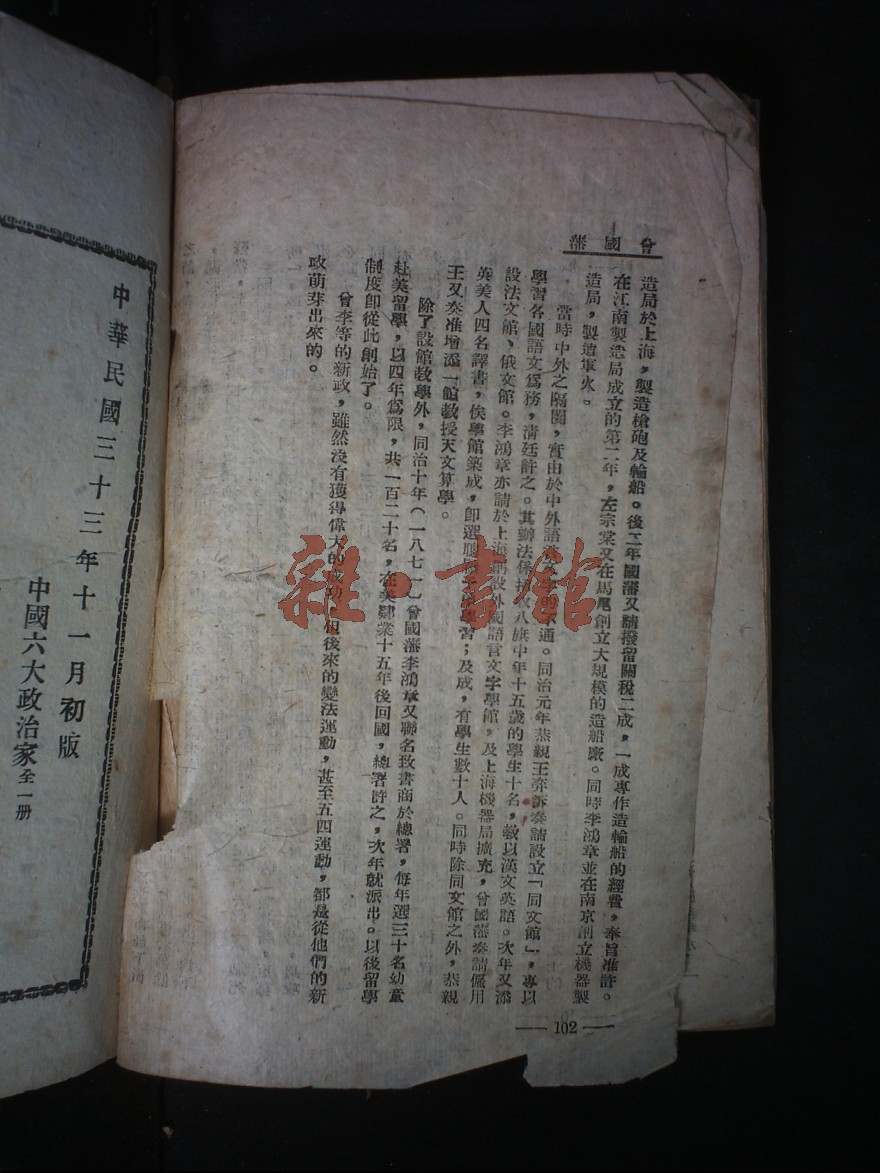 曾國藩
造局於上海，製造槍砲及輪船。後二年國藩又請撥留關稅二成，一成專作造輪船的經費，奉旨准許。
在江南製造局成立的第二年，左宗棠又在馬尾創立大規模的造船廠。同時李鴻章並在南京創立機器製
造局，製造軍火。
當時中外之隔閡，實由於中外語言文字的不通。同治元年恭親王奕訢奏請設立「同文館」，專以
學習各國語文爲務，清廷許之。其辦法係招收八旗中年十五歲的學生十名，敎以漢文英語。次年又添
設法文館、俄文館。李鴻章亦請於上海創設外國語言文字學館，及上海機器局擴充，曾國藩奏請僱用
英美人四名譯書，俟學館築成，卽選聰 學習；及成，有學生數十人。同時除同文館之外，恭親
王又奏准增添一館敎授天文算學。
除了設館敎學外，同治十年（一八七一）曾國藩李鴻章又聯名致書商於總署，每年選三十名幼童
赴美留學，以四年爲限，共一百二十名，在美肄業十五年後回國，總署許之，次年就派出。以後留學
制度卽從此創始了。
曾李等的新政，雖然沒有獲得偉大的成功，但後來的變法運動，甚至五四運動，都是從他們的新
政萌芽出來的。
— 102 —
中華民國三十三年十一月初版
中國六大政治家 全一册
雜·書館